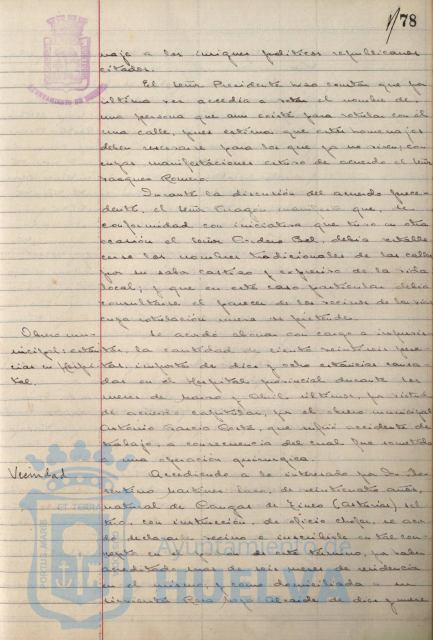 78
naje a los insignes políticos republicanos
citados.
El Señor Presidente hizo constar que por
última vez accedía a votar el nombre de
una persona que aun existe para rotular con él
una calle, pues estima que estos homenajes
deben reservarse para los que ya no viven; con
cuyas manifestaciones estuvo de acuerdo el Señor
Vazquez Romero.
Durante la discusión del acuerdo prece-
dente, el Señor Aragón manifestó que, de
conformidad con iniciativa que tuvo en otra
ocasión el Señor Cordero Bel, debía restable-
cerse los nombres tradicionales de las calles
por su sabor castizo y expresivo de la vida
local; y que en este caso particular debía
consultarse el parecer de los vecinos de la vía
cuya rotulación nueva se pretende.
Obrero mu-
nicipal: estan-
cias en Hospi-
tal.
Se acordó abonar con cargo a imprevis-
tos, la cantidad de ciento veintiseis pese-
tas, importe de diez y ocho estancias causa-
das en el Hospital provincial durante los
meses de Marzo y Abril últimos, en virtud
de acuerdo capitular, por el obrero municipal
Antonio García, que sufrió accidente de
trabajo, a consecuencia del cual fue sometido
a una operación quirúrgica.
Vecindad
Accediendo a lo interesado por Don
Martínez, de veinticuatro años,
natural de Cangas de Tineo (Asturias) sol-
tero, con instrucción, de oficio chofer, se acor-
dó declararle vecino e inscribirle en tal con-
cepto en el padrón de este término, por haber
acreditado mas de seis meses de residencia
en el mismo, y como domiciliada a su
sirvienta Rosa, de diez y nueve
Ayuntamiento de
HUELVA